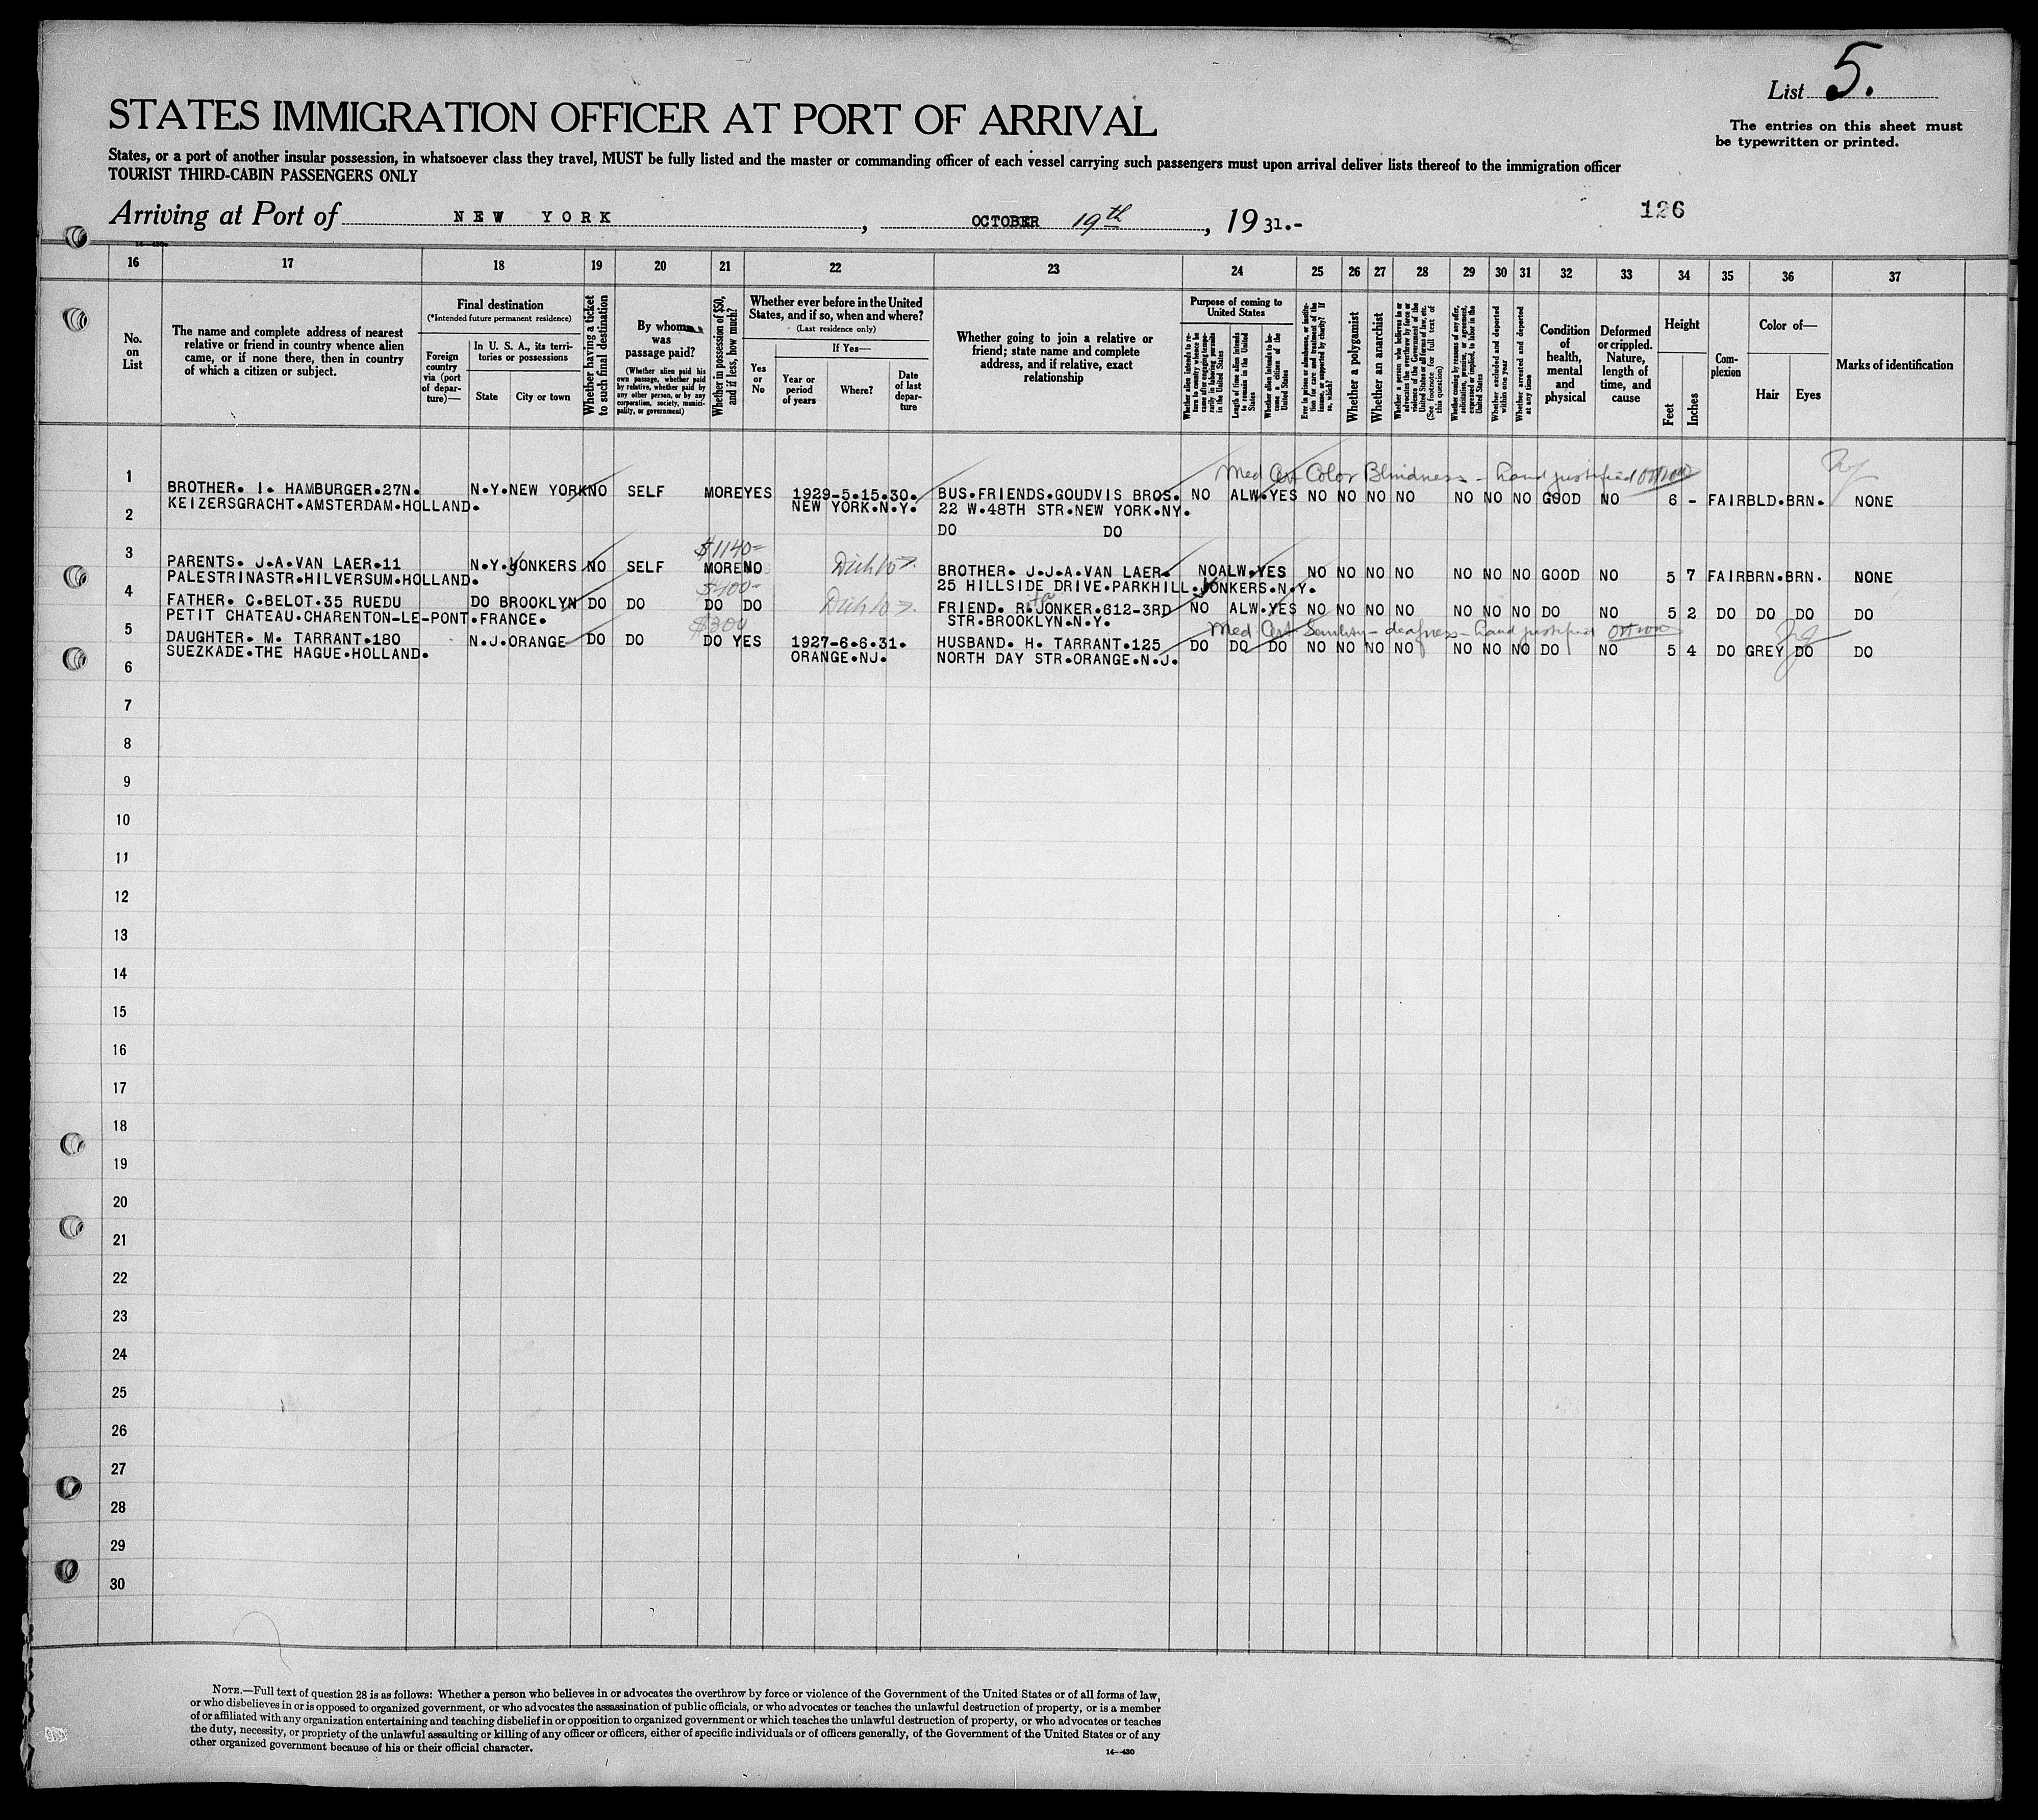 List 5.
STATES IMMIGRATION OFFICER AT PORT OF ARRIVAL
The entries on this sheet must
be typewritten or printed.
States, or a port of another insular possession, in whatsoever class they travel, MUST be fully listed and the master or commanding officer of each vessel carrying such passengers must upon arrival deliver lists thereof to the immigration officer
TOURIST THIRD-CABIN PASSENGERS ONLY
Arriving at Port of NEW YORK, OCTOBER 19th, 1931.-
126
16 17 18 19 20 21 22 23 24 25 26 27 28 29 30 31 32 33 34 35 36 37
No. on List
The name and complete address of nearest
relative or friend in country whence alien
came, or if none there, then in country
of which a citizen or subject.
Final destination
(*Intended future permanent residence)
Foreign country via (port of departure)—
In U. S. A., its territories or possessions
State City or town
Whether having a ticket to such final destination
By whom was passage paid?
(Whether alien paid his own passage, whether paid by relative, whether paid by any other person, or by any corporation, society, municipality, or government)
Whether in possession of $50, and if less, how much?
Whether ever before in the United States, and if so, when and where?
(Last residence only)
Yes or No
If Yes—
Year or period of years
Where?
Date of last departure
Whether going to join a relative or
friend; state name and complete
address, and if relative, exact
relationship
Purpose of coming to United States
Whether alien intends to return to country whence he came after engaging temporarily in laboring pursuits in the United States
Length of time alien intends to remain in the United States
Whether alien intends to become a citizen of the United States
Ever in prison or almshouse, or institution for care and treatment of the insane, or supported by charity? If so, which?
Whether a polygamist
Whether an anarchist
Whether a person who believes in or advocates the overthrow by force or violence of the Government of the United States or all forms of law, etc. (See footnote for full text of this question)
Whether coming by reason of any offer, solicitation, promise, or agreement, expressed or implied, to labor in the United States
Whether excluded and deported within one year
Whether arrested and deported at any time
Condition of health, mental and physical
Deformed or crippled. Nature, length of time, and cause
Height
Feet Inches
Complexion
Color of—
Hair Eyes
Marks of identification
Med Cert Color Blindness - hand justified
1 BROTHER. I. HAMBURGER.27N. N.Y. NEW YORK NO SELF MORE YES 1929-5.15.30. BUS.FRIENDS.GOUDVIS BROS. NO ALW. YES NO NO NO NO NO NO NO GOOD NO 6 - FAIR BLD. BRN. NONE
KEIZERSGRACHT.AMSTERDAM.HOLLAND. NEW YORK.N.Y. 22 W.48TH STR.NEW YORK.NY.
2 DO DO
$1140-
3 PARENTS. J.A.VAN LAER.11 N.Y. YONKERS NO SELF MORE NO BROTHER. J.J.A.VAN LAER. NO ALW. YES NO NO NO NO NO NO NO GOOD NO 5 7 FAIR BRN. BRN. NONE
PALESTRINASTR.HILVERSUM.HOLLAND. 25 HILLSIDE DRIVE.PARKHILL.JONKERS.N.Y.
$400-
4 FATHER. C.BELOT.35 RUEDU DO BROOKLYN DO DO DO DO FRIEND. R.JONKER.612-3RD NO ALW. YES NO NO NO NO NO NO NO DO NO 5 2 DO DO DO DO
PETIT CHATEAU.CHARENTON-LE-PONT.FRANCE. STR.BROOKLYN.N.Y.
$300
Med Cert Senility - deafness - hand justified
5 DAUGHTER. M. TARRANT.180 N.J. ORANGE DO DO DO YES 1927-6.6.31. HUSBAND. H. TARRANT.125 DO DO DO NO NO NO NO NO NO NO DO NO 5 4 DO GREY DO DO
SUEZKADE.THE HAGUE.HOLLAND. ORANGE.NJ. NORTH DAY STR.ORANGE.N.J.
6
7
8
9
10
11
12
13
14
15
16
17
18
19
20
21
22
23
24
25
26
27
28
29
30
NOTE.—Full text of question 28 is as follows: Whether a person who believes in or advocates the overthrow by force or violence of the Government of the United States or of all forms of law,
or who disbelieves in or is opposed to organized government, or who advocates the assassination of public officials, or who advocates or teaches the unlawful destruction of property, or is a member
of or affiliated with any organization entertaining and teaching disbelief in or opposition to organized government or which teaches the unlawful destruction of property, or who advocates or teaches
the duty, necessity, or propriety of the unlawful assaulting or killing of any officer or officers, either of specific individuals or of officers generally, of the Government of the United States or of any
other organized government because of his or their official character.
14—430